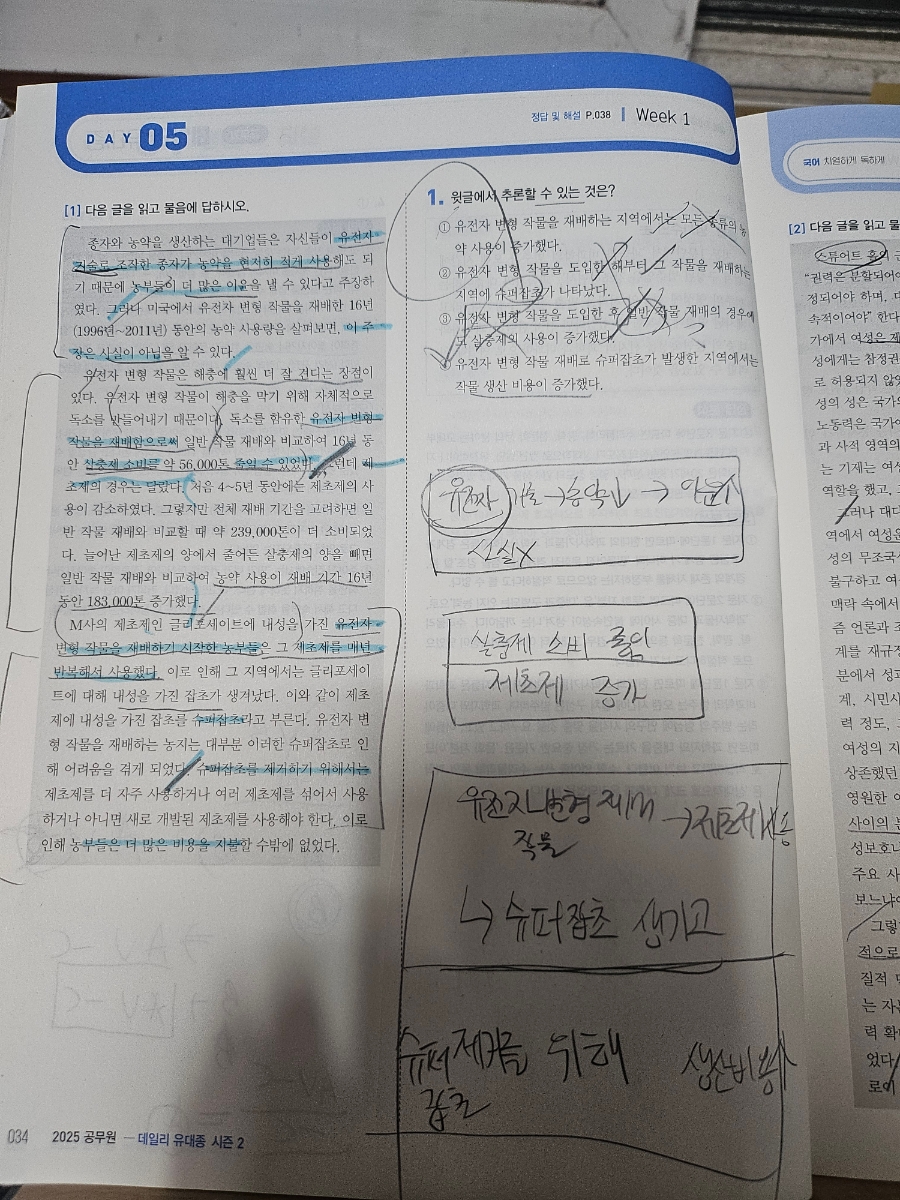 DAY 05
정답 및 해설 P.038 | Week 1
[1] 다음 글을 읽고 물음에 답하시오.
종자와 농약을 생산하는 대기업들은 자신들이 유전자
기술로 조작한 종자가 농약을 현저히 적게 사용해도 되
기 때문에 농부들이 더 많은 이윤을 낼 수 있다고 주장하
였다. 그러나 미국에서 유전자 변형 작물을 재배한 16년
(1996년~2011년) 동안의 농약 사용량을 살펴보면, 이 주
장은 사실이 아님을 알 수 있다.
유전자 변형 작물은 해충에 훨씬 더 잘 견디는 장점이
있다. 유전자 변형 작물이 해충을 막기 위해 자체적으로
독소를 만들어내기 때문이다. 독소를 함유한 유전자 변형
작물을 재배함으로써 일반 작물 재배와 비교하여 16년 동
안 살충제 소비를 약 56,000톤 줄일 수 있었다. 그런데 제
초제의 경우는 달랐다. 처음 4~5년 동안에는 제초제의 사
용이 감소하였다. 그렇지만 전체 재배 기간을 고려하면 일
반 작물 재배와 비교할 때 약 239,000톤이 더 소비되었
다. 늘어난 제초제의 양에서 줄어든 살충제의 양을 빼면
일반 작물 재배와 비교하여 농약 사용이 재배 기간 16년
동안 183,000톤 증가했다.
M사의 제초제인 글리포세이트에 내성을 가진 유전자
변형 작물을 재배하기 시작한 농부들은 그 제초제를 매년
반복해서 사용했다. 이로 인해 그 지역에서는 글리포세이
트에 대해 내성을 가진 잡초가 생겨났다. 이와 같이 제초
제에 내성을 가진 잡초를 슈퍼잡초라고 부른다. 유전자 변
형 작물을 재배하는 농지는 대부분 이러한 슈퍼잡초로 인
해 어려움을 겪게 되었다. 슈퍼잡초를 제거하기 위해서는
제초제를 더 자주 사용하거나 여러 제초제를 섞어서 사용
하거나 아니면 새로 개발된 제초제를 사용해야 한다. 이로
인해 농부들은 더 많은 비용을 지불할 수밖에 없었다.
034 2025 공무원 — 데일리 유대종 시즌 2
1. 윗글에서 추론할 수 있는 것은?
① 유전자 변형 작물을 재배하는 지역에서는 모든 종류의 농
약 사용이 증가했다.
② 유전자 변형 작물을 도입한 해부터 그 작물을 재배하는
지역에 슈퍼잡초가 나타났다.
③ 유전자 변형 작물을 도입한 후 일반 작물 재배의 경우에
도 살충제의 사용이 증가했다.
유전자 변형 작물 재배로 슈퍼잡초가 발생한 지역에서는
작물 생산 비용이 증가했다.
유전자
사실X
살충제 소비 줄임
제초제 증가
유전자변형 재배 → 제초제사용
작물
↳ 슈퍼잡초 생기고
슈퍼 제거를 위해 생산비용
잡초
국어 치열하게 독하게
[2] 다음 글을 읽고 물
스튜어트 홀의
"권력은 분할되어야
정되어야 하며,
속적이어야" 한다
가에서 여성은 제
성에게는 참정권
로 허용되지 않았
성의 성은 국가의
노동력은 국가
과 사적 영역의
는 기제는 여성
역할을 했고,
그러나 대다
역에서 여성운
성의 무조국
불구하고 여
맥락 속에서
즘 언론과 조
계를 재규정
분에서 성과
게, 시민사
력 정도,
여성의 지
상존했던
영원한 이
사이의 분
성보호니
주요 사
보느냐에
그렇
적으로
질적
는 자
력 확
었다
로이